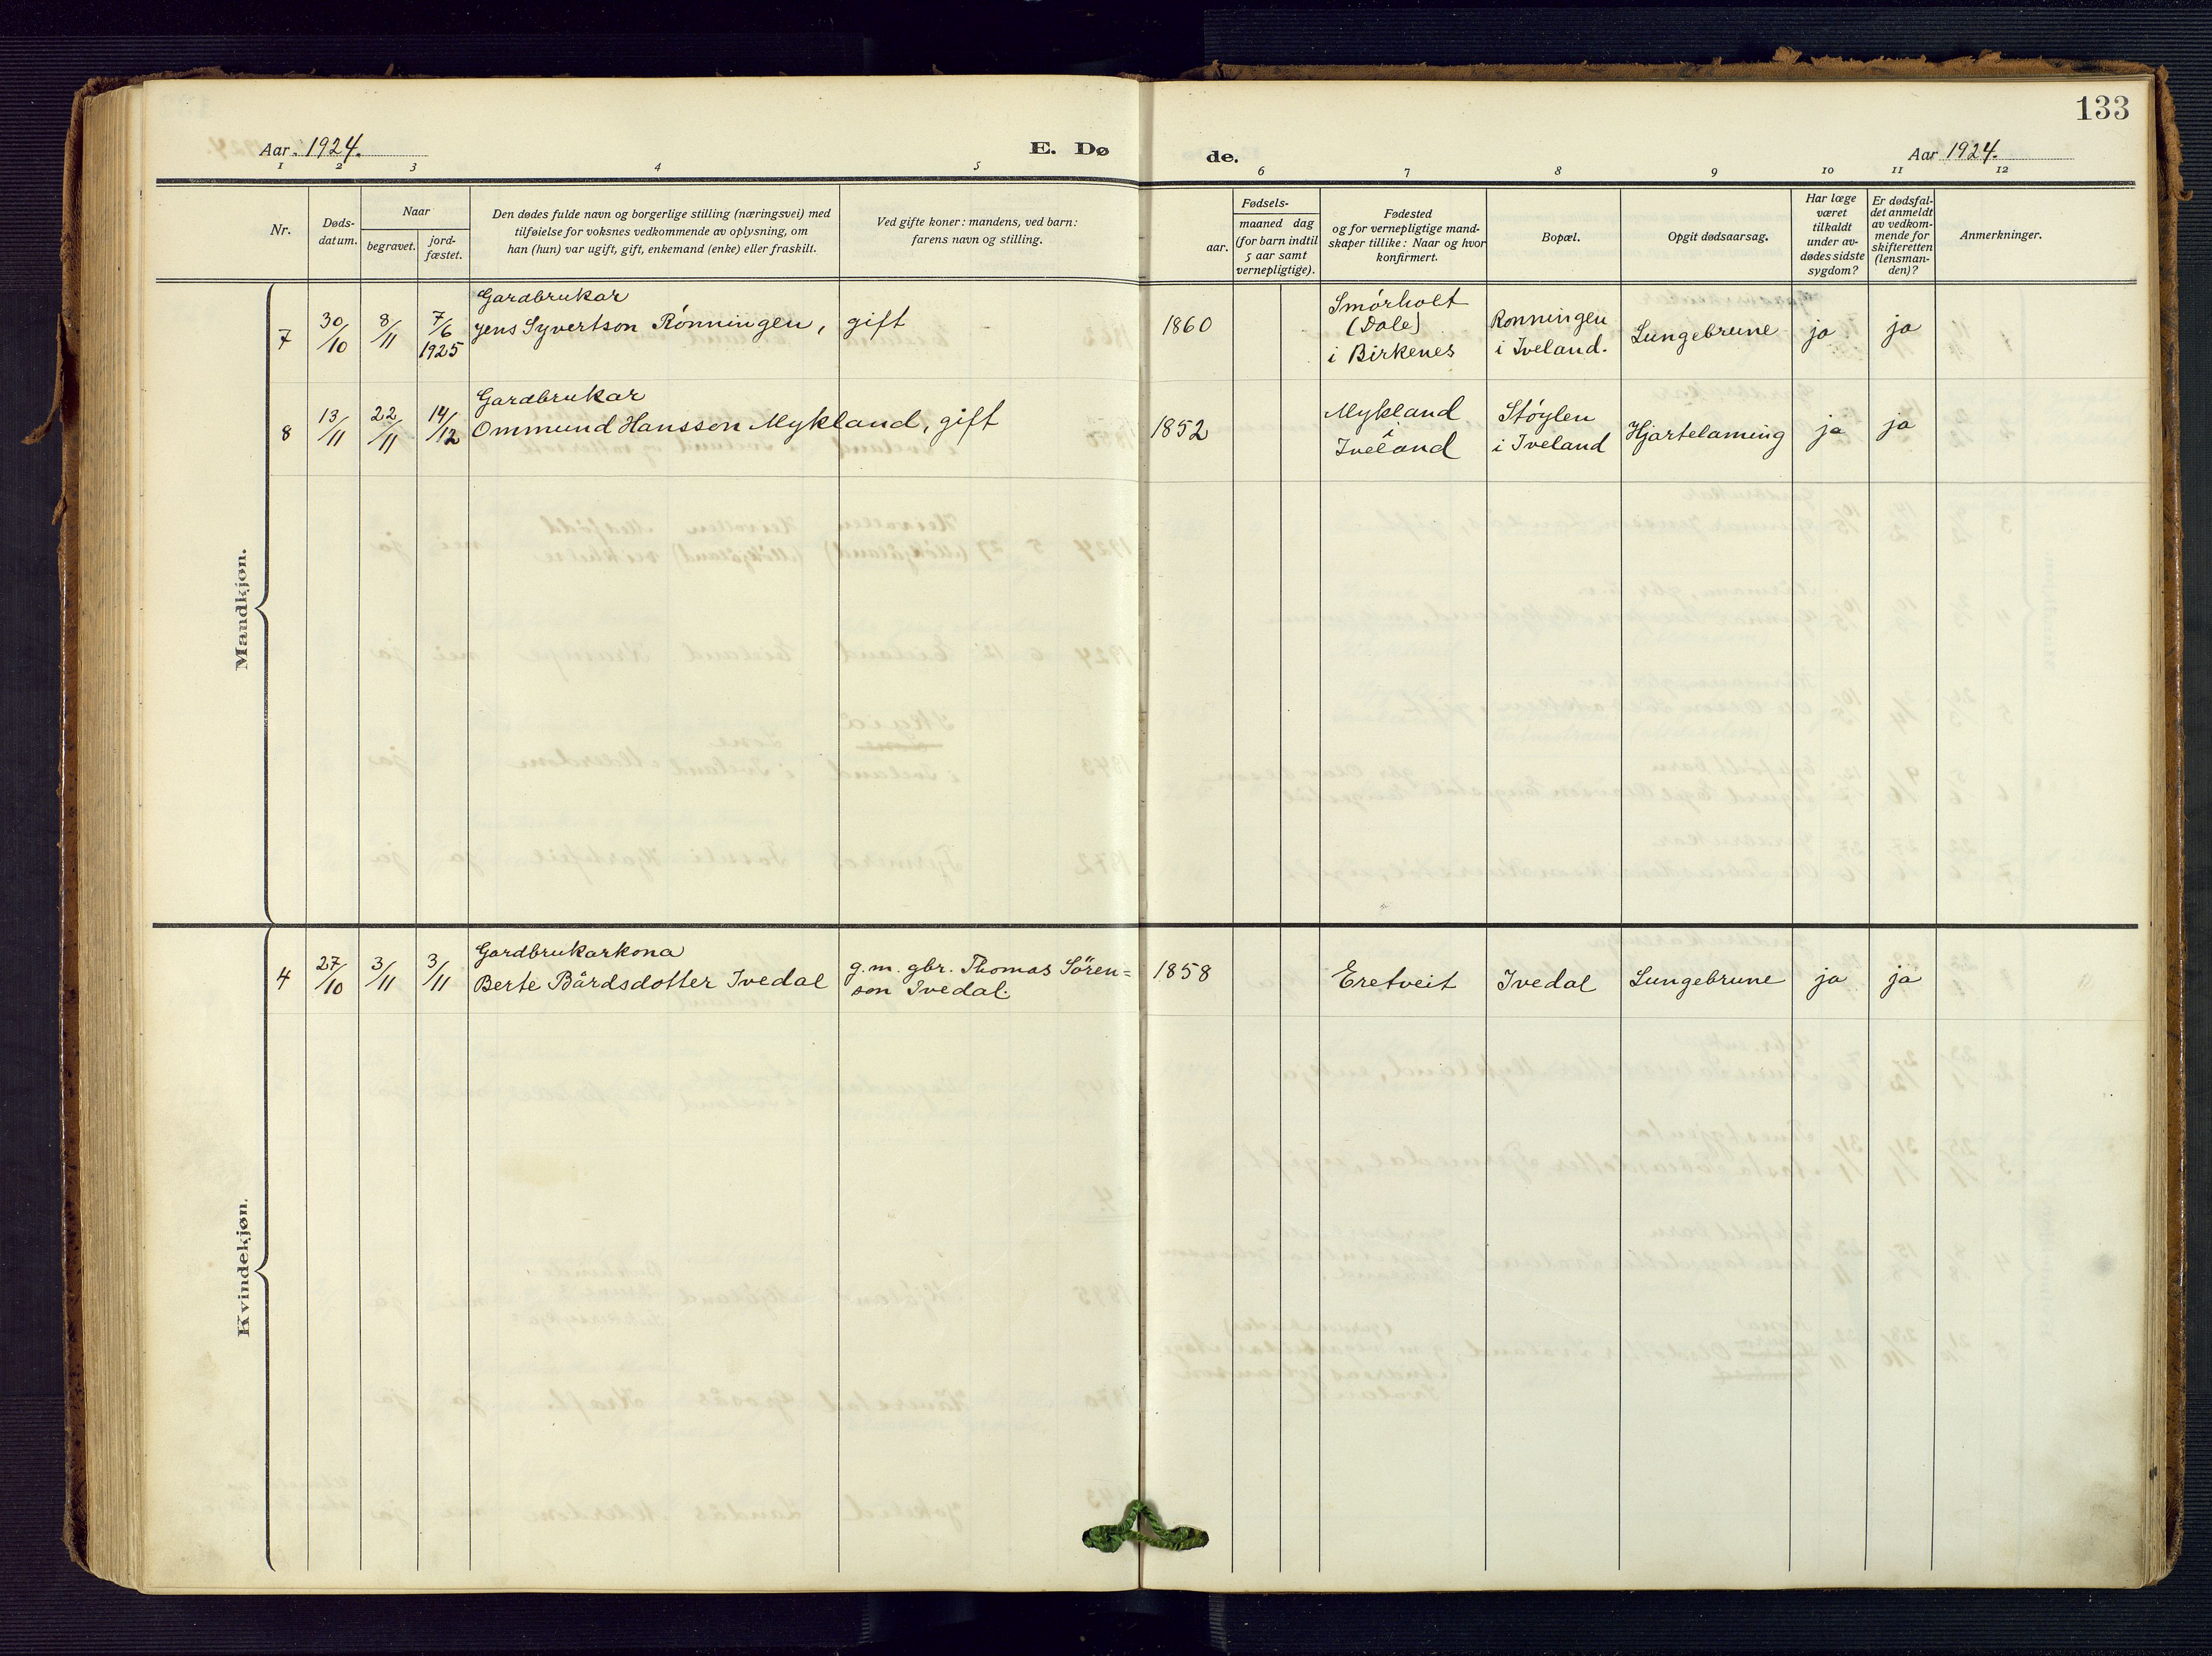 133
Aar 1924.
E. Dø
de.
Aar 1924.
1 2 3 4 5 6 7 8 9 10 11 12
Nr.
Døds-
datum.
Naar
begravet.
jord-
fæstet.
Den dødes fulde navn og borgerlige stilling (næringsvei) med
tilføielse for voksnes vedkommende av oplysning, om
han (hun) var ugift, gift, enkemand (enke) eller fraskilt.
Ved gifte koner: mandens, ved barn:
farens navn og stilling.
Fødsels-
aar.
maaned dag
(for barn indtil
5 aar samt
vernepligtige).
Fødested
og for vernepligtige mand-
skaper tillike: Naar og hvor
konfirmert.
Bopæl.
Opgit dødsaarsag.
Har læge
været
tilkaldt
under av-
dødes sidste
sygdom?
Er dødsfal-
det anmeldt
av vedkom-
mende for
skifteretten
(lensman-
den)?
Anmerkninger.
Mandkjøn.
7
30/10
8/11
7/6
1925
Gardbrukar
Jens Syvertson Rönningen, gift
1860
Smörholt
(Dale)
i Birkenes
Rönningen
i Iveland.
Lungebrune
ja
ja
8
13/11
22/11
14/12
Gardbrukar
Ommund Hansson Mykland, gift
1852
Mykland
i
Iveland
Stöylen
i Iveland
Hjartelaming
ja
ja
Kvindekjøn.
4
27/10
3/11
3/11
Gardbrukarkona
Berte Bårdsdotter Ivedal
g.m. gbr. Thomas Sören=
son Ivedal.
1858
Eretveit
Ivedal
Lungebrune
ja
ja